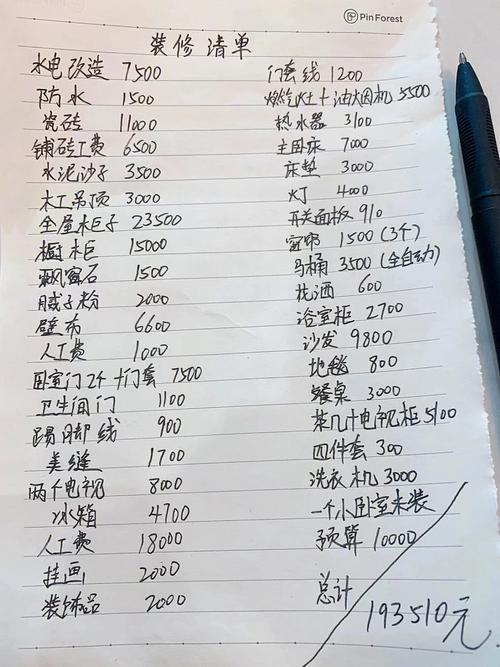 Pin Forest
装修清单
水电改造 7500
防水 1500
瓷砖 11000
铺砖工费 6500
水泥沙子 3500
木工吊顶 3000
全屋柜子 23500
橱柜 15000
飘窗石 1500
腻子粉 2000
壁布 6600
人工费 1000
卧室门2个+门套 7500
卫生间门 1100
踢脚线 900
美缝 1700
两个电视 8000
冰箱 4700
人工费 18000
挂画 2000
装饰品 2000
门套线 1200
燃气灶+油烟机 5500
热水器 3100
主卧床 7000
床垫 3000
灯 4000
开关面板 910
窗帘 1500(3个)
马桶 3500(全自动)
花洒 600
浴室柜 2700
沙发 9800
地毯 800
餐桌 3000
茶几+电视柜 5100
四件套 300
洗衣机 3000
一个小卧室未装
预算 10000
总计
193510元